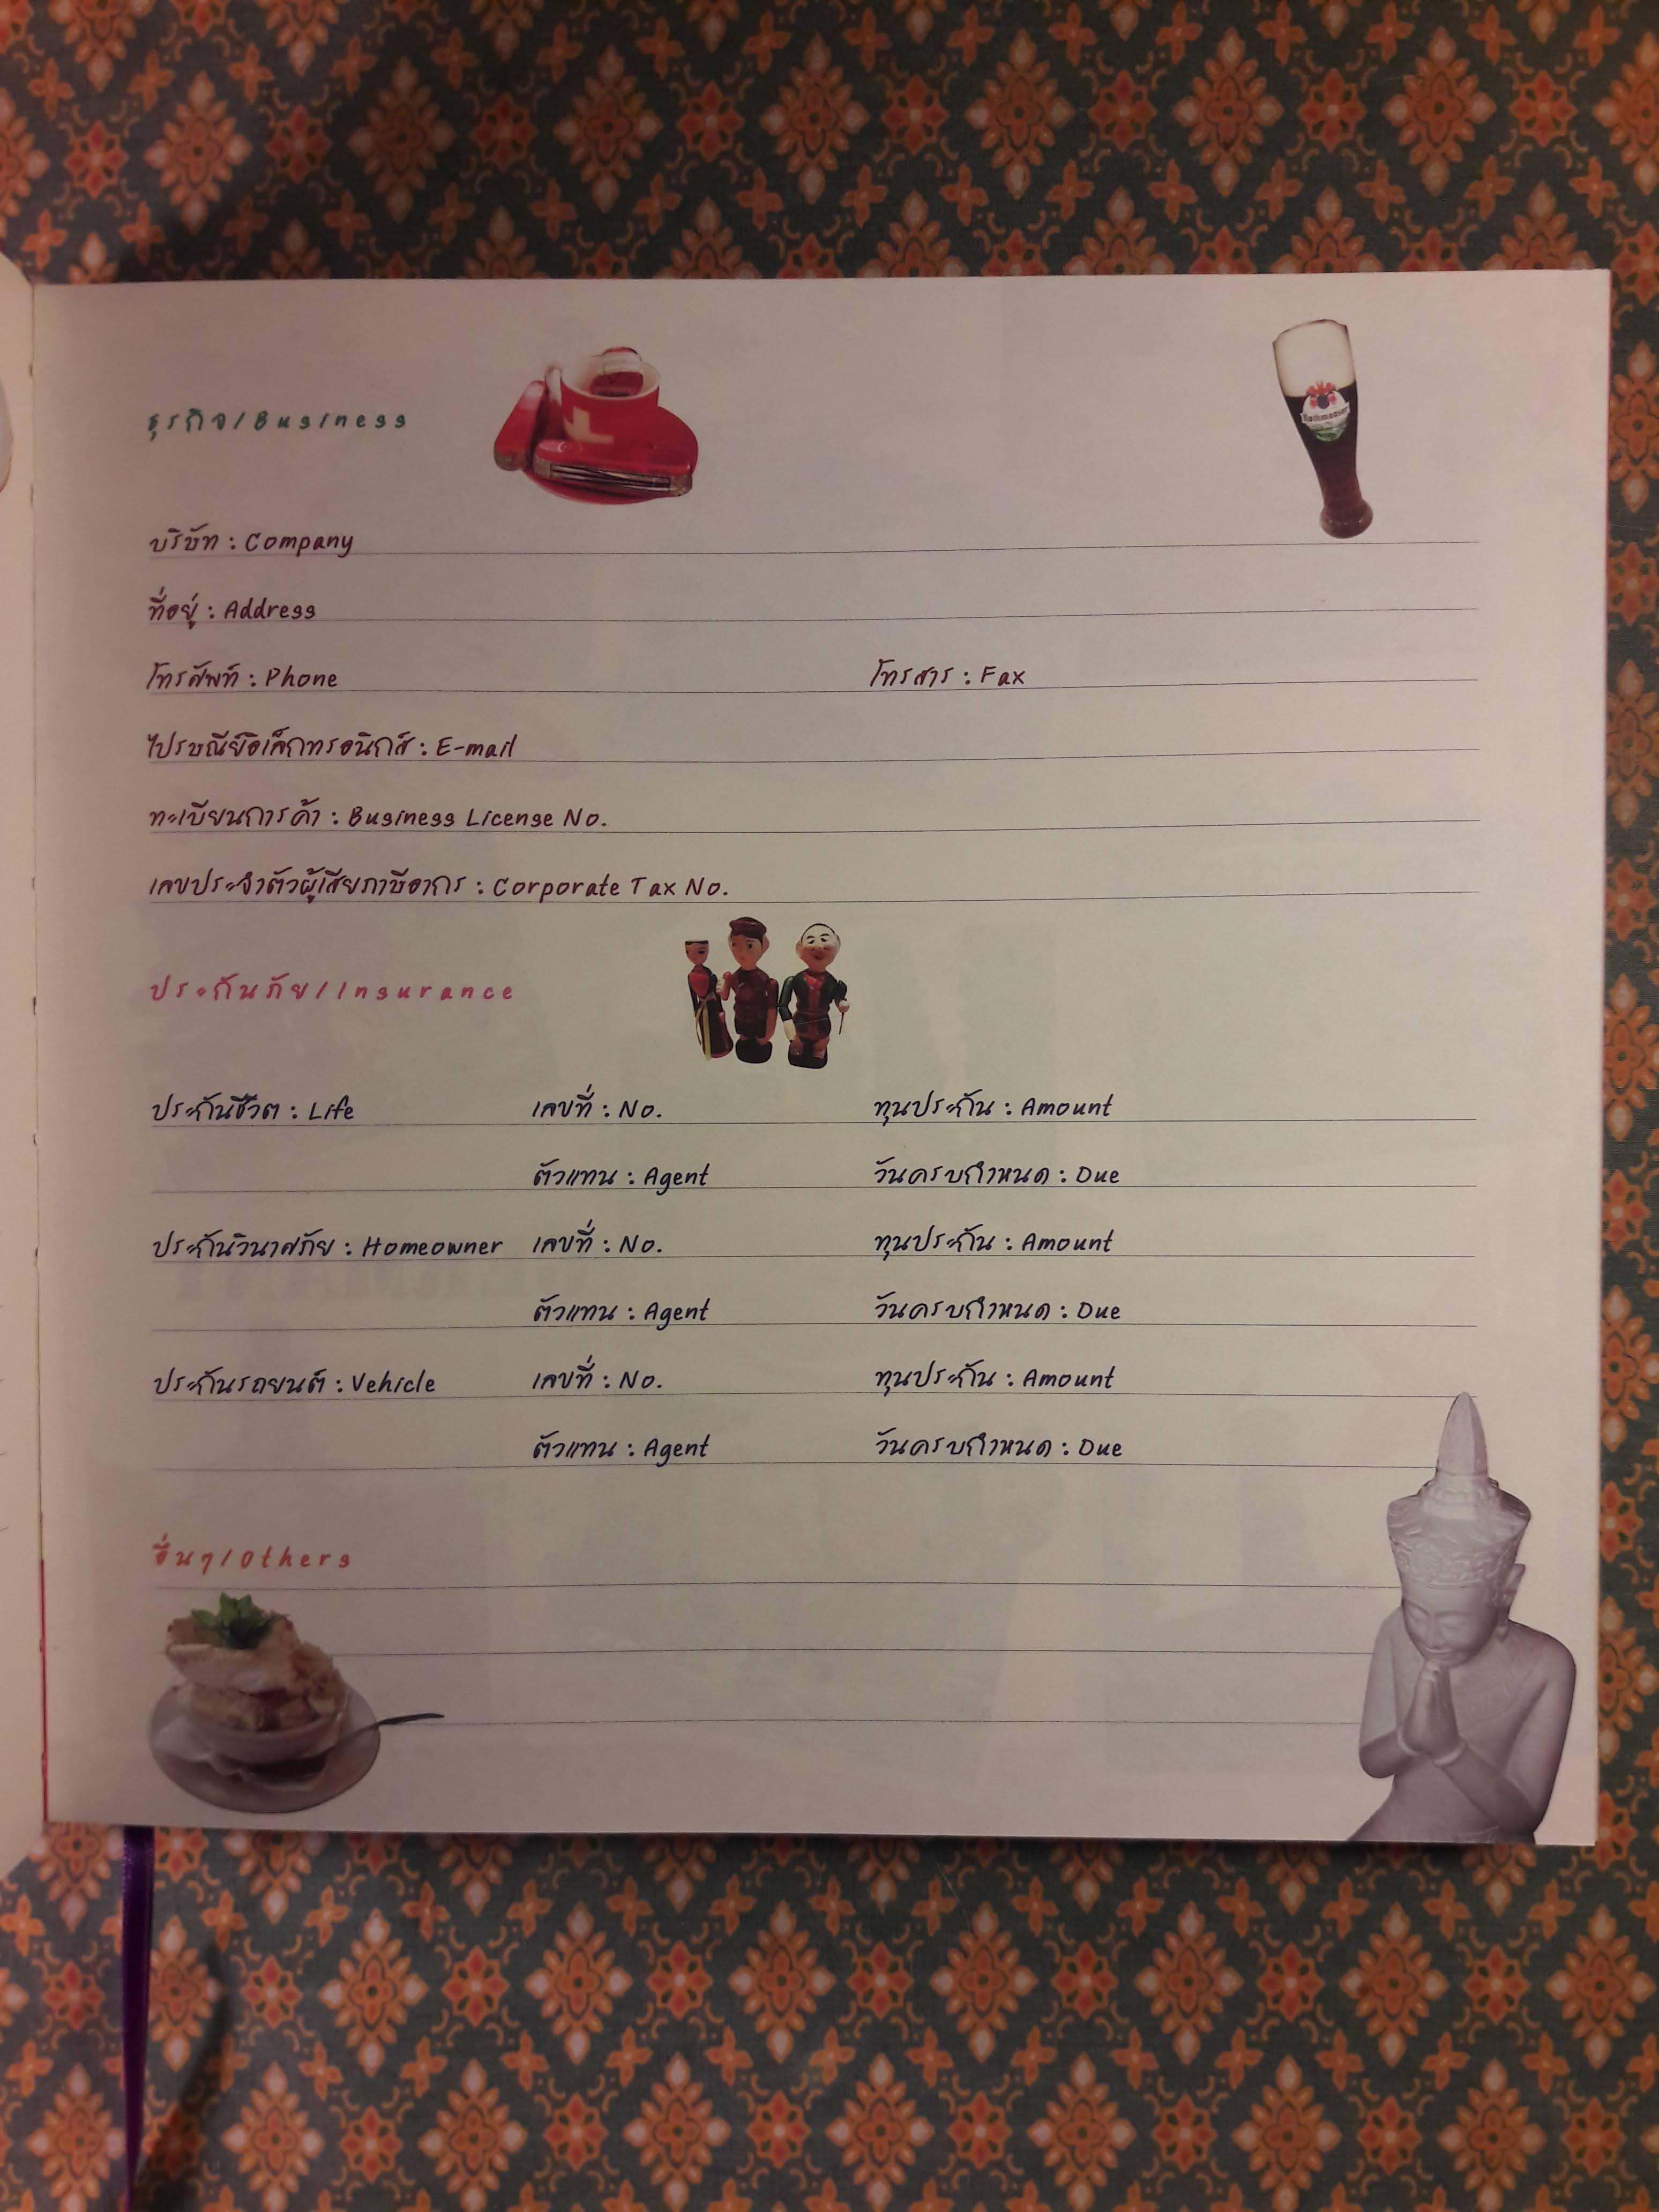 ธุรกิจ/Business
บริษัท : Company
ที่อยู่ : Address
โทรศัพท์ : Phone โทรสาร : Fax
ไปรษณีย์อิเล็กทรอนิกส์ : E-mail
ทะเบียนการค้า : Business License No.
เลขประจำตัวผู้เสียภาษีอากร : Corporate Tax No.
ประกันภัย/Insurance
ประกันชีวิต : Life เลขที่ : No. ทุนประกัน : Amount
ตัวแทน : Agent วันครบกำหนด : Due
ประกันวินาศภัย : Homeowner เลขที่ : No. ทุนประกัน : Amount
ตัวแทน : Agent วันครบกำหนด : Due
ประกันรถยนต์ : Vehicle เลขที่ : No. ทุนประกัน : Amount
ตัวแทน : Agent วันครบกำหนด : Due
อื่นๆ/Others